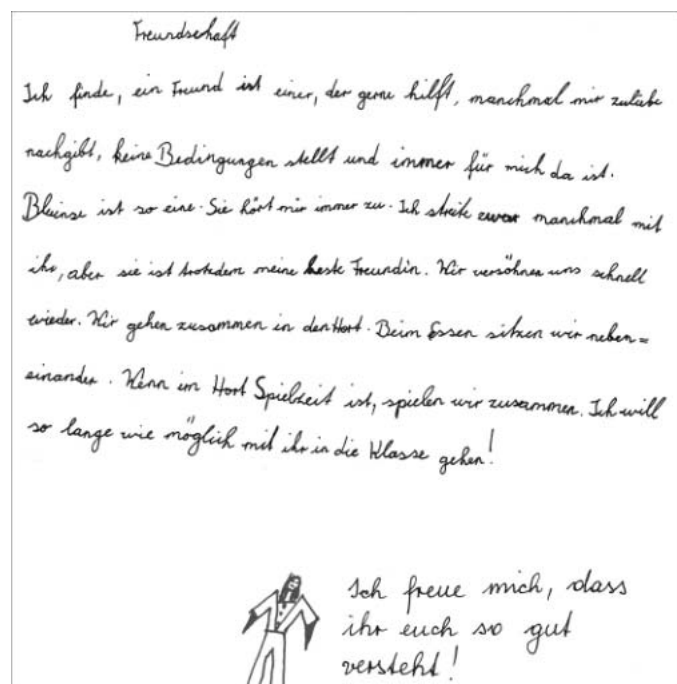 Freundschaft
Ich finde, ein Freund ist einer, der gerne hilft, manchmal mir zuliebe
nachgibt, keine Bedingungen stellt und immer für mich da ist.
ist so eine. Sie hört mir immer zu. Ich streite zwar manchmal mit
ihr, aber sie ist trotzdem meine beste Freundin. Wir versöhnen uns schnell
wieder. Wir gehen zusammen in den Hort. Beim Essen sitzen wir neben=
einander. Wenn im Hort Spielzeit ist, spielen wir zusammen. Ich will
so lange wie möglich mit ihr in die Klasse gehen!
Ich freue mich, dass
ihr euch so gut
versteht!